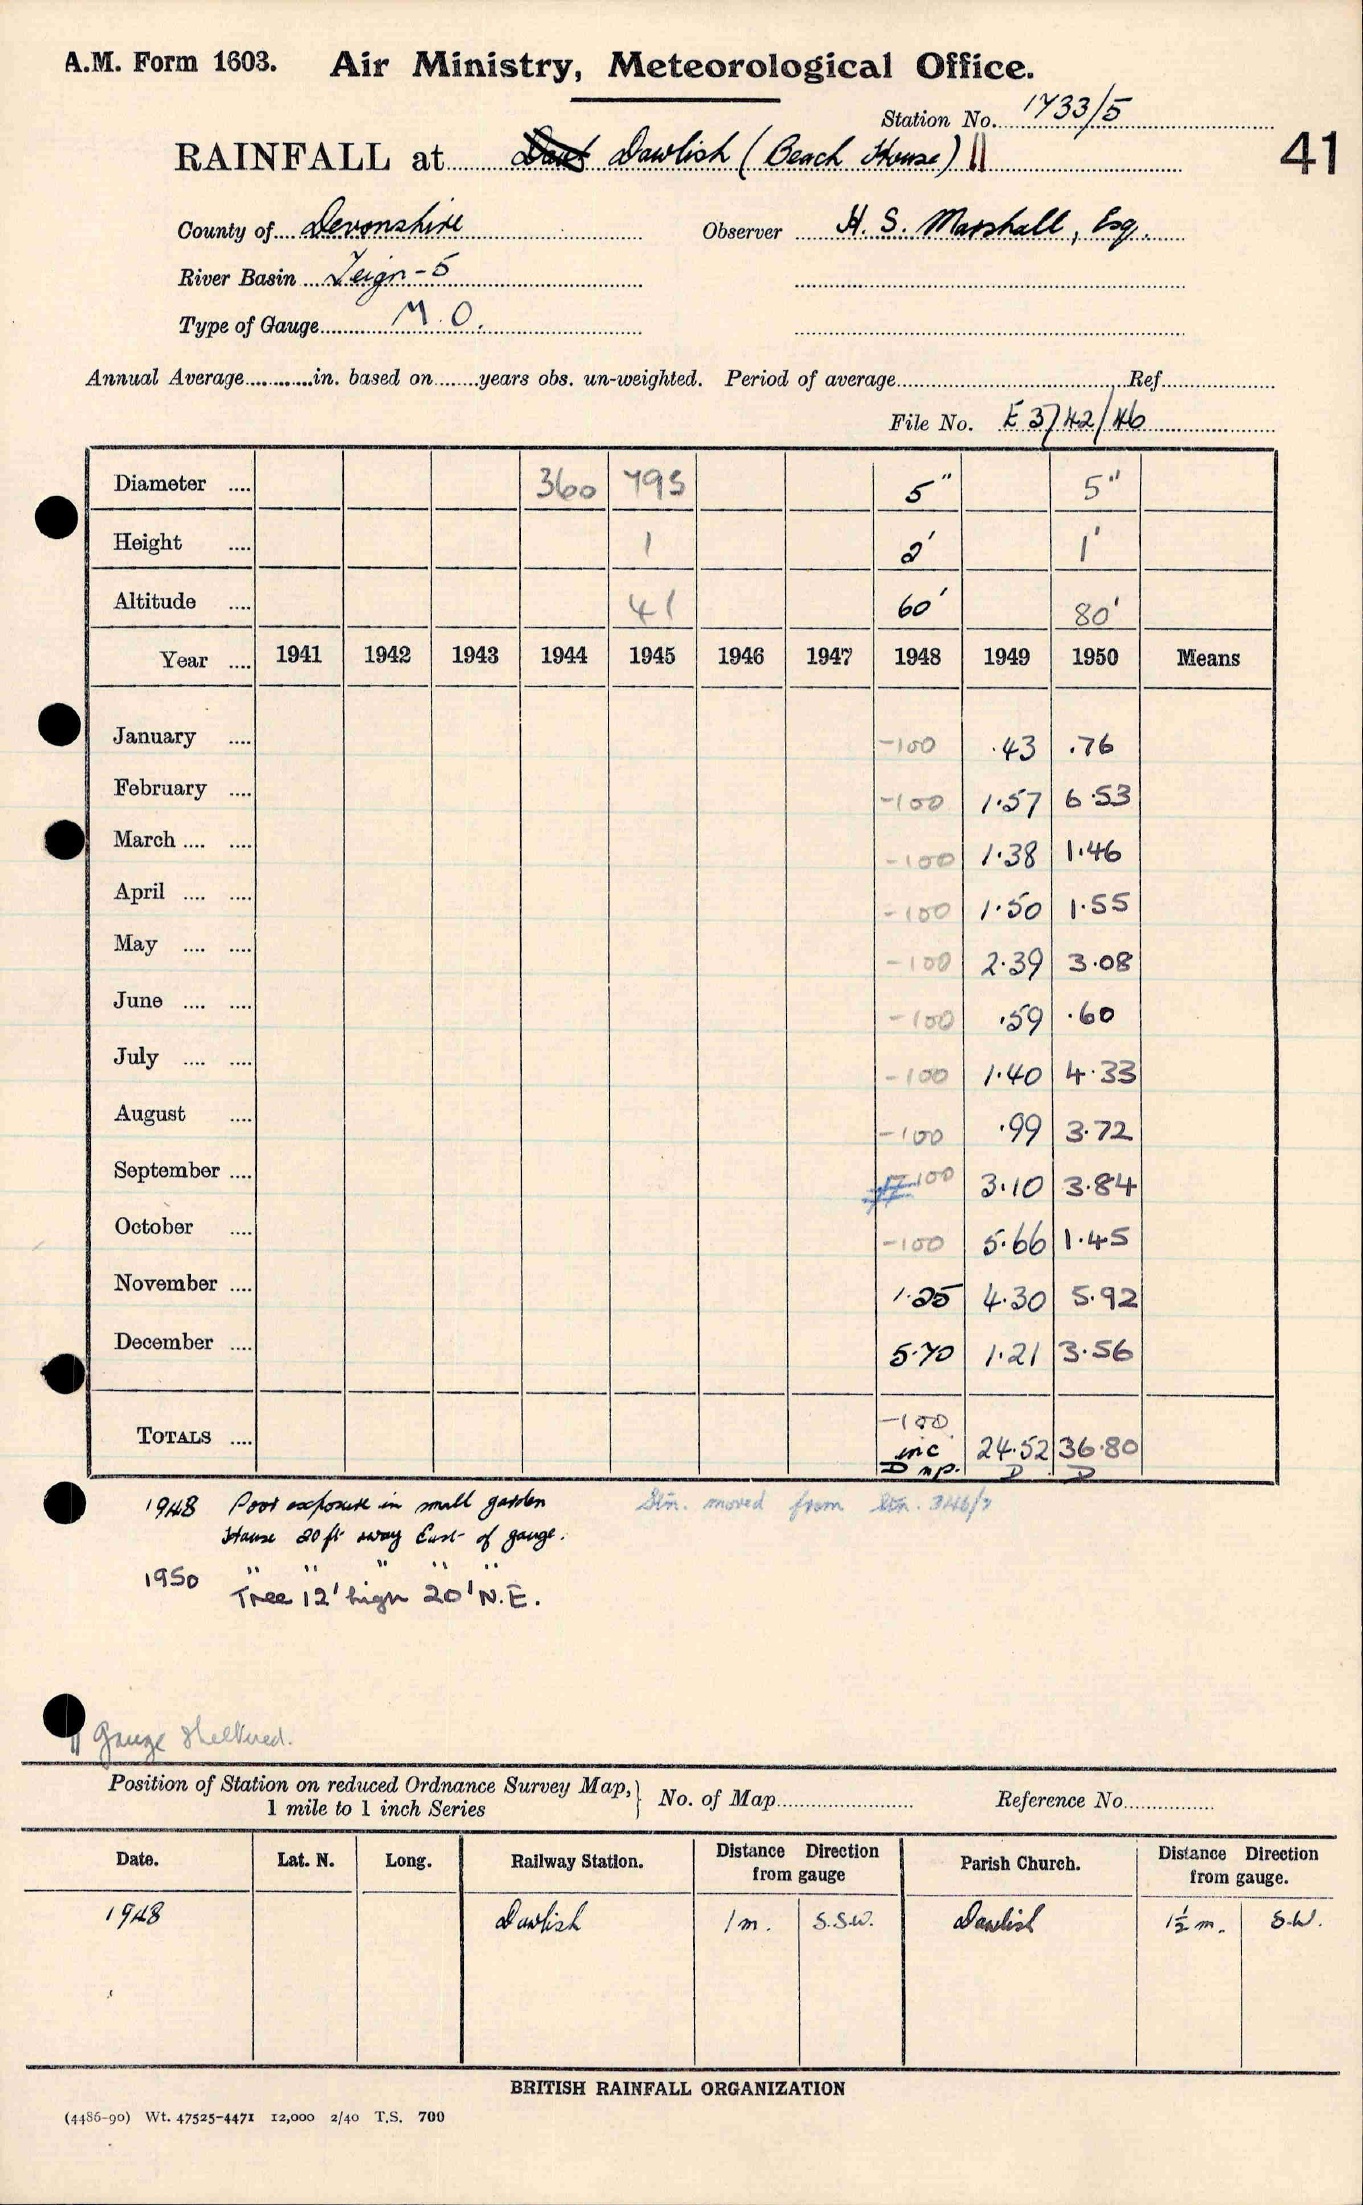 A.M. Form 1603. Air Ministry, Meteorological Office.
Station No. 1733/5
41
RAINFALL at Dawlish (Beach House) ||
County of Devonshire Observer H. S. Marshall, Esq.
River Basin Teign - 5
Type of Gauge M.O.
Annual Average in. based on years obs. un-weighted. Period of average Ref
File No. E 3742/46
Diameter 360 795 5" 5"
Height 1 2' 1'
Altitude 41 60' 80'
Year 1941 1942 1943 1944 1945 1946 1947 1948 1949 1950 Means
January -100 .43 .76
February -100 1.57 6.53
March -100 1.38 1.46
April -100 1.50 1.55
May -100 2.39 3.08
June -100 .59 .60
July -100 1.40 4.33
August -100 .99 3.72
September -100 3.10 3.84
October -100 5.66 1.45
November 1.25 4.30 5.92
December 5.70 1.21 3.56
TOTALS -100 inc D np. 24.52 D 36.80 D
1948 Poor exposure in small garden
House 20 ft away East of gauge.
Stn. moved from Stn. 346/2
1950 " " " " "
Tree 12' high 20' N.E.
|| Gauge sheltered.
Position of Station on reduced Ordnance Survey Map, 1 mile to 1 inch Series } No. of Map Reference No.
Date. Lat. N. Long. Railway Station. Distance Direction from gauge Parish Church. Distance Direction from gauge.
1948 Dawlish 1 m. S.S.W. Dawlish 1½ m. S.W.
BRITISH RAINFALL ORGANIZATION
(4486-90) Wt. 47525-4471 12,000 2/40 T.S. 700